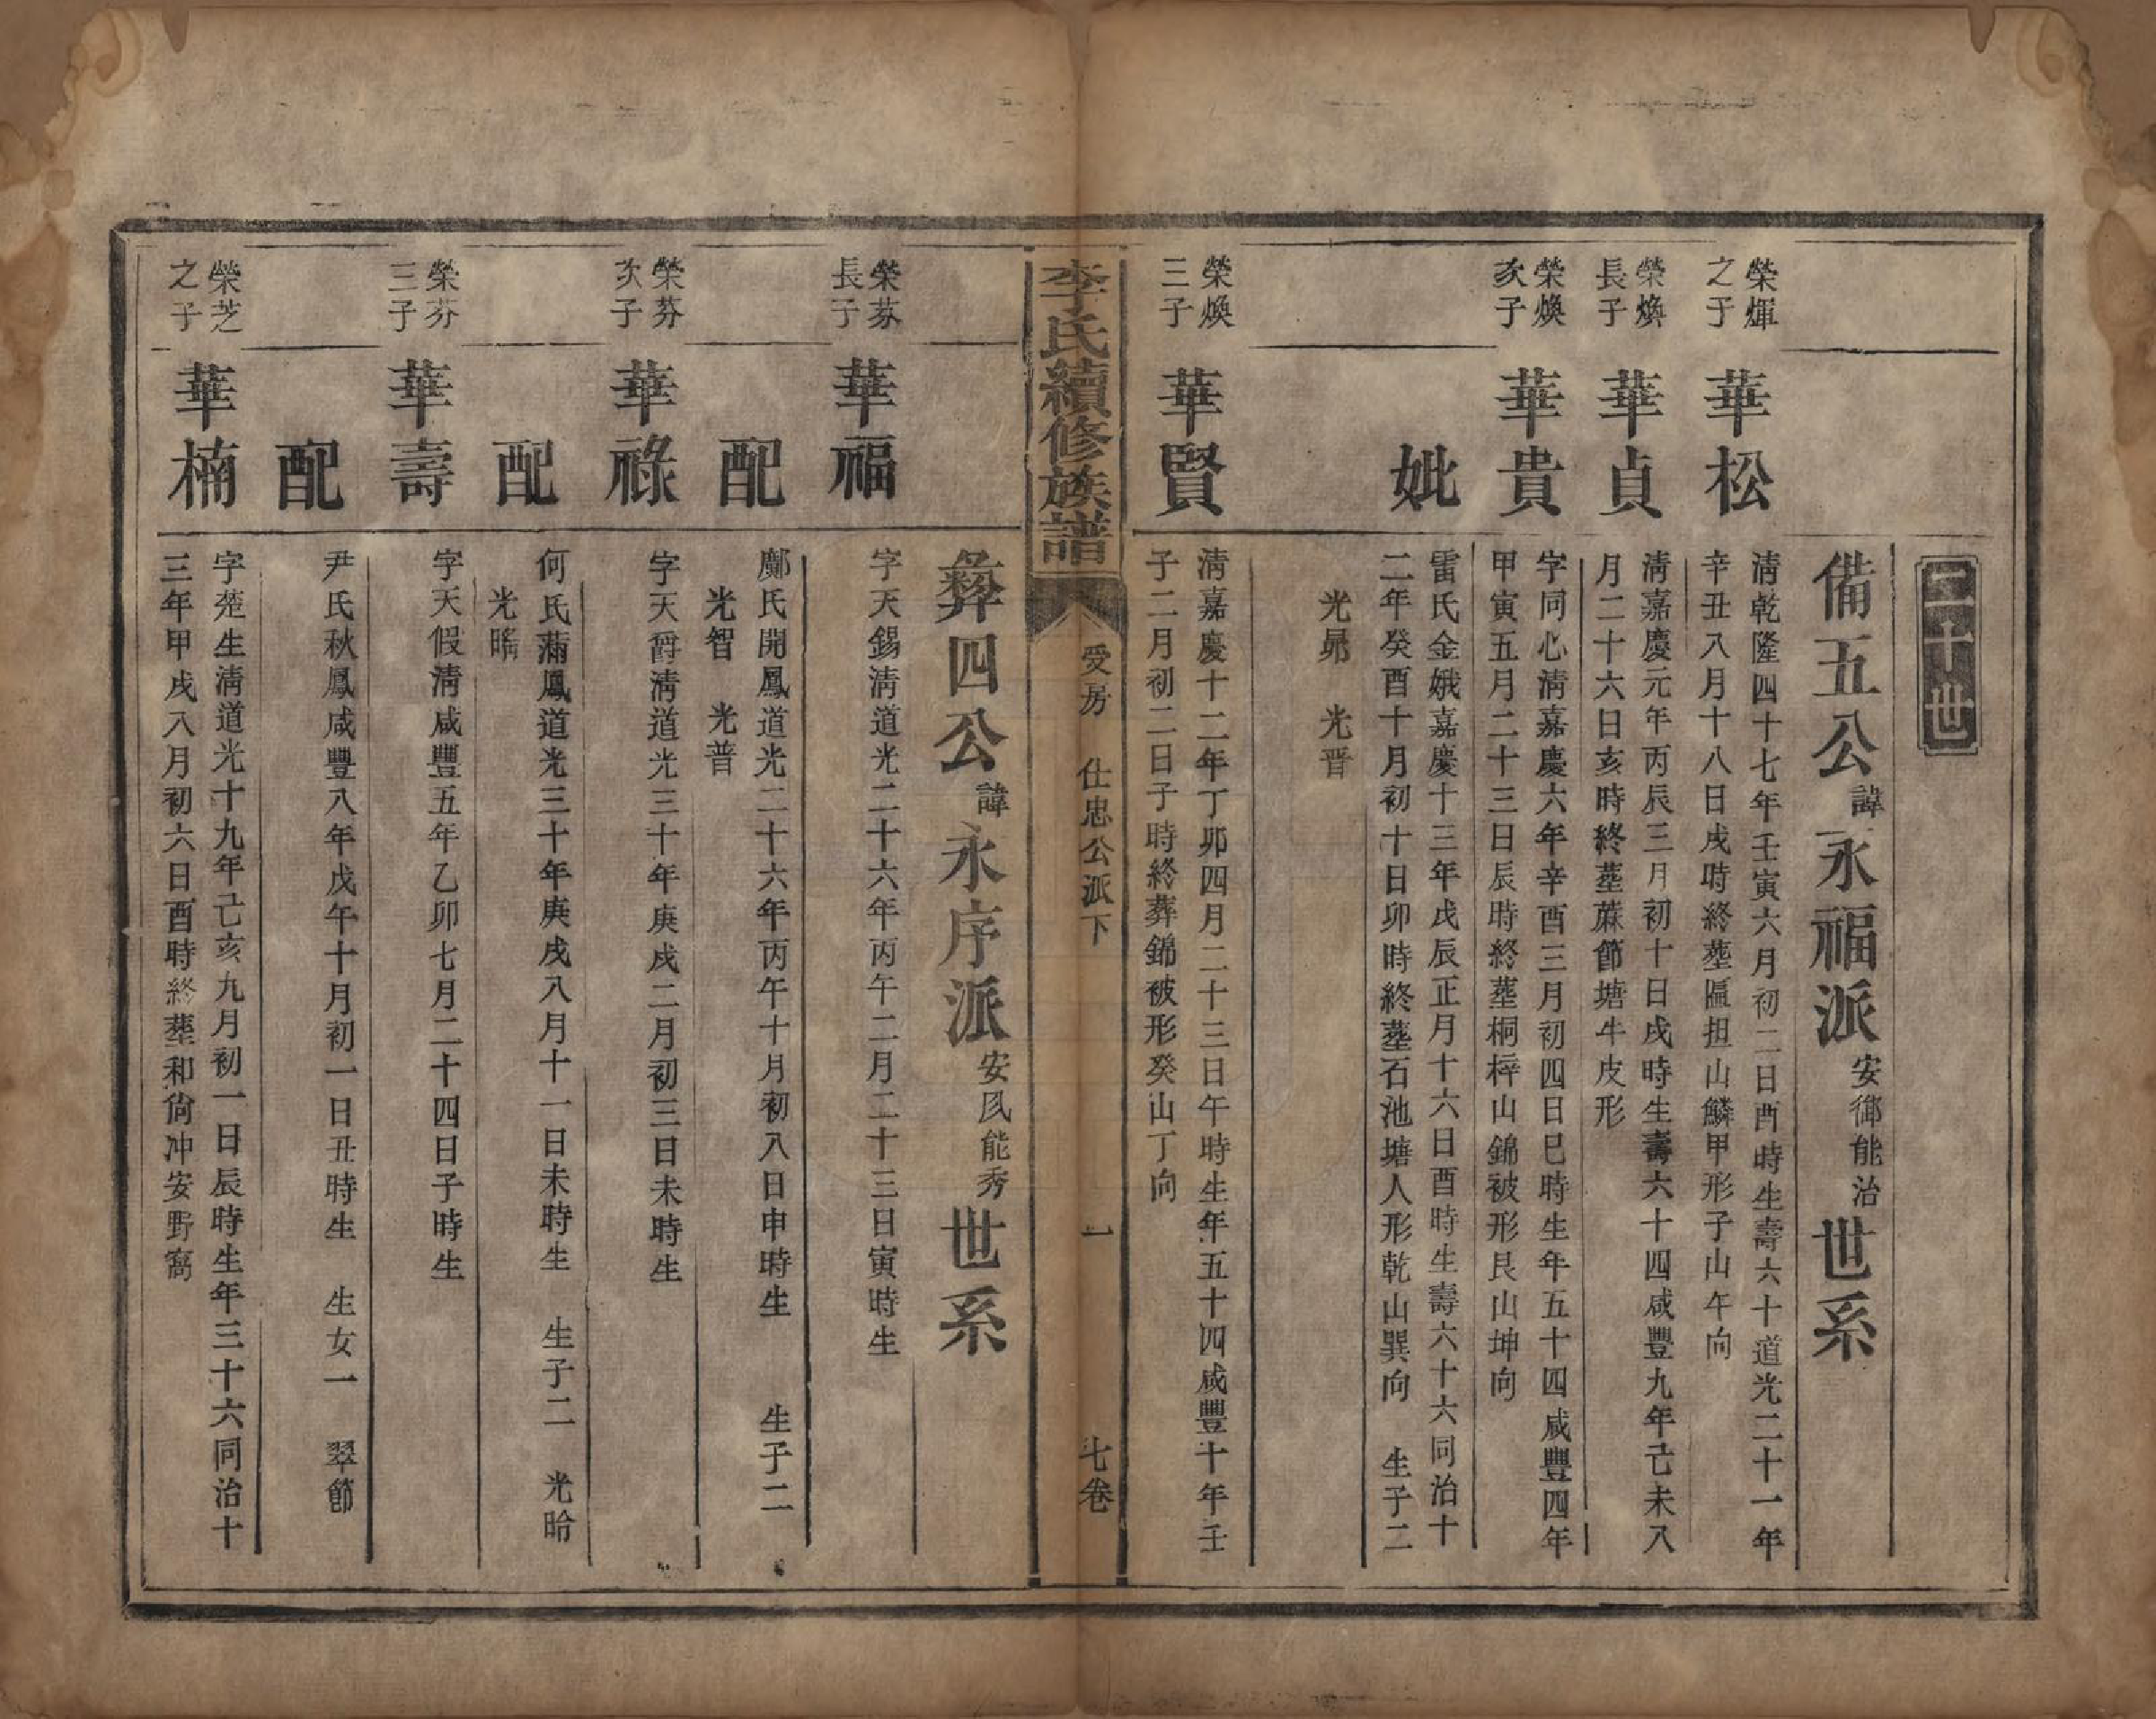 二十世
備五公諱永福派安御能治世系
榮煇之子
華松
清乾隆四十七年壬寅六月初二日酉時生壽六十道光二十一年
辛丑八月十八日戌時終塟匾担山鱗甲形子山午向
榮煥長子
華貞
清嘉慶元年丙辰三月初十日戌時生壽六十四咸豐九年己未八
月二十六日亥時終塟蔴節塘牛皮形
榮煥次子
華貴
字同心清嘉慶六年辛酉三月初四日巳時生年五十四咸豐四年
甲寅五月二十三日辰時終塟桐梓山錦被形艮山坤向
妣
雷氏金娥嘉慶十三年戊辰正月十六日酉時生壽六十六同治十
二年癸酉十月初十日卯時終塟石池塘人形乾山巽向 生子二
光昴 光晋
榮煥三子
華賢
清嘉慶十二年丁卯四月二十三日午時生年五十四咸豐十年壬
子二月初二日子時終葬錦被形癸山丁向
李氏續修族譜 受房 仕忠公派下 一 七卷
彝四公諱永序派安民能秀世系
榮芬長子
華福
字天錫清道光二十六年丙午二月二十三日寅時生
配
鄺氏開鳳道光二十六年丙午十月初八日申時生 生子二
光智 光普
榮芬次子
華祿
字天爵清道光三十年庚戌二月初三日未時生
配
何氏滿鳳道光三十年庚戌八月十一日未時生 生子二 光晗
光晴
榮芬三子
華壽
字天假清咸豐五年乙卯七月二十四日子時生
配
尹氏秋鳳咸豐八年戊午十月初一日丑時生 生女一 翠節
榮芝之子
華楠
字楚生清道光十九年己亥九月初一日辰時生年三十六同治十
三年甲戌八月初六日酉時終塟和尙冲安野窩